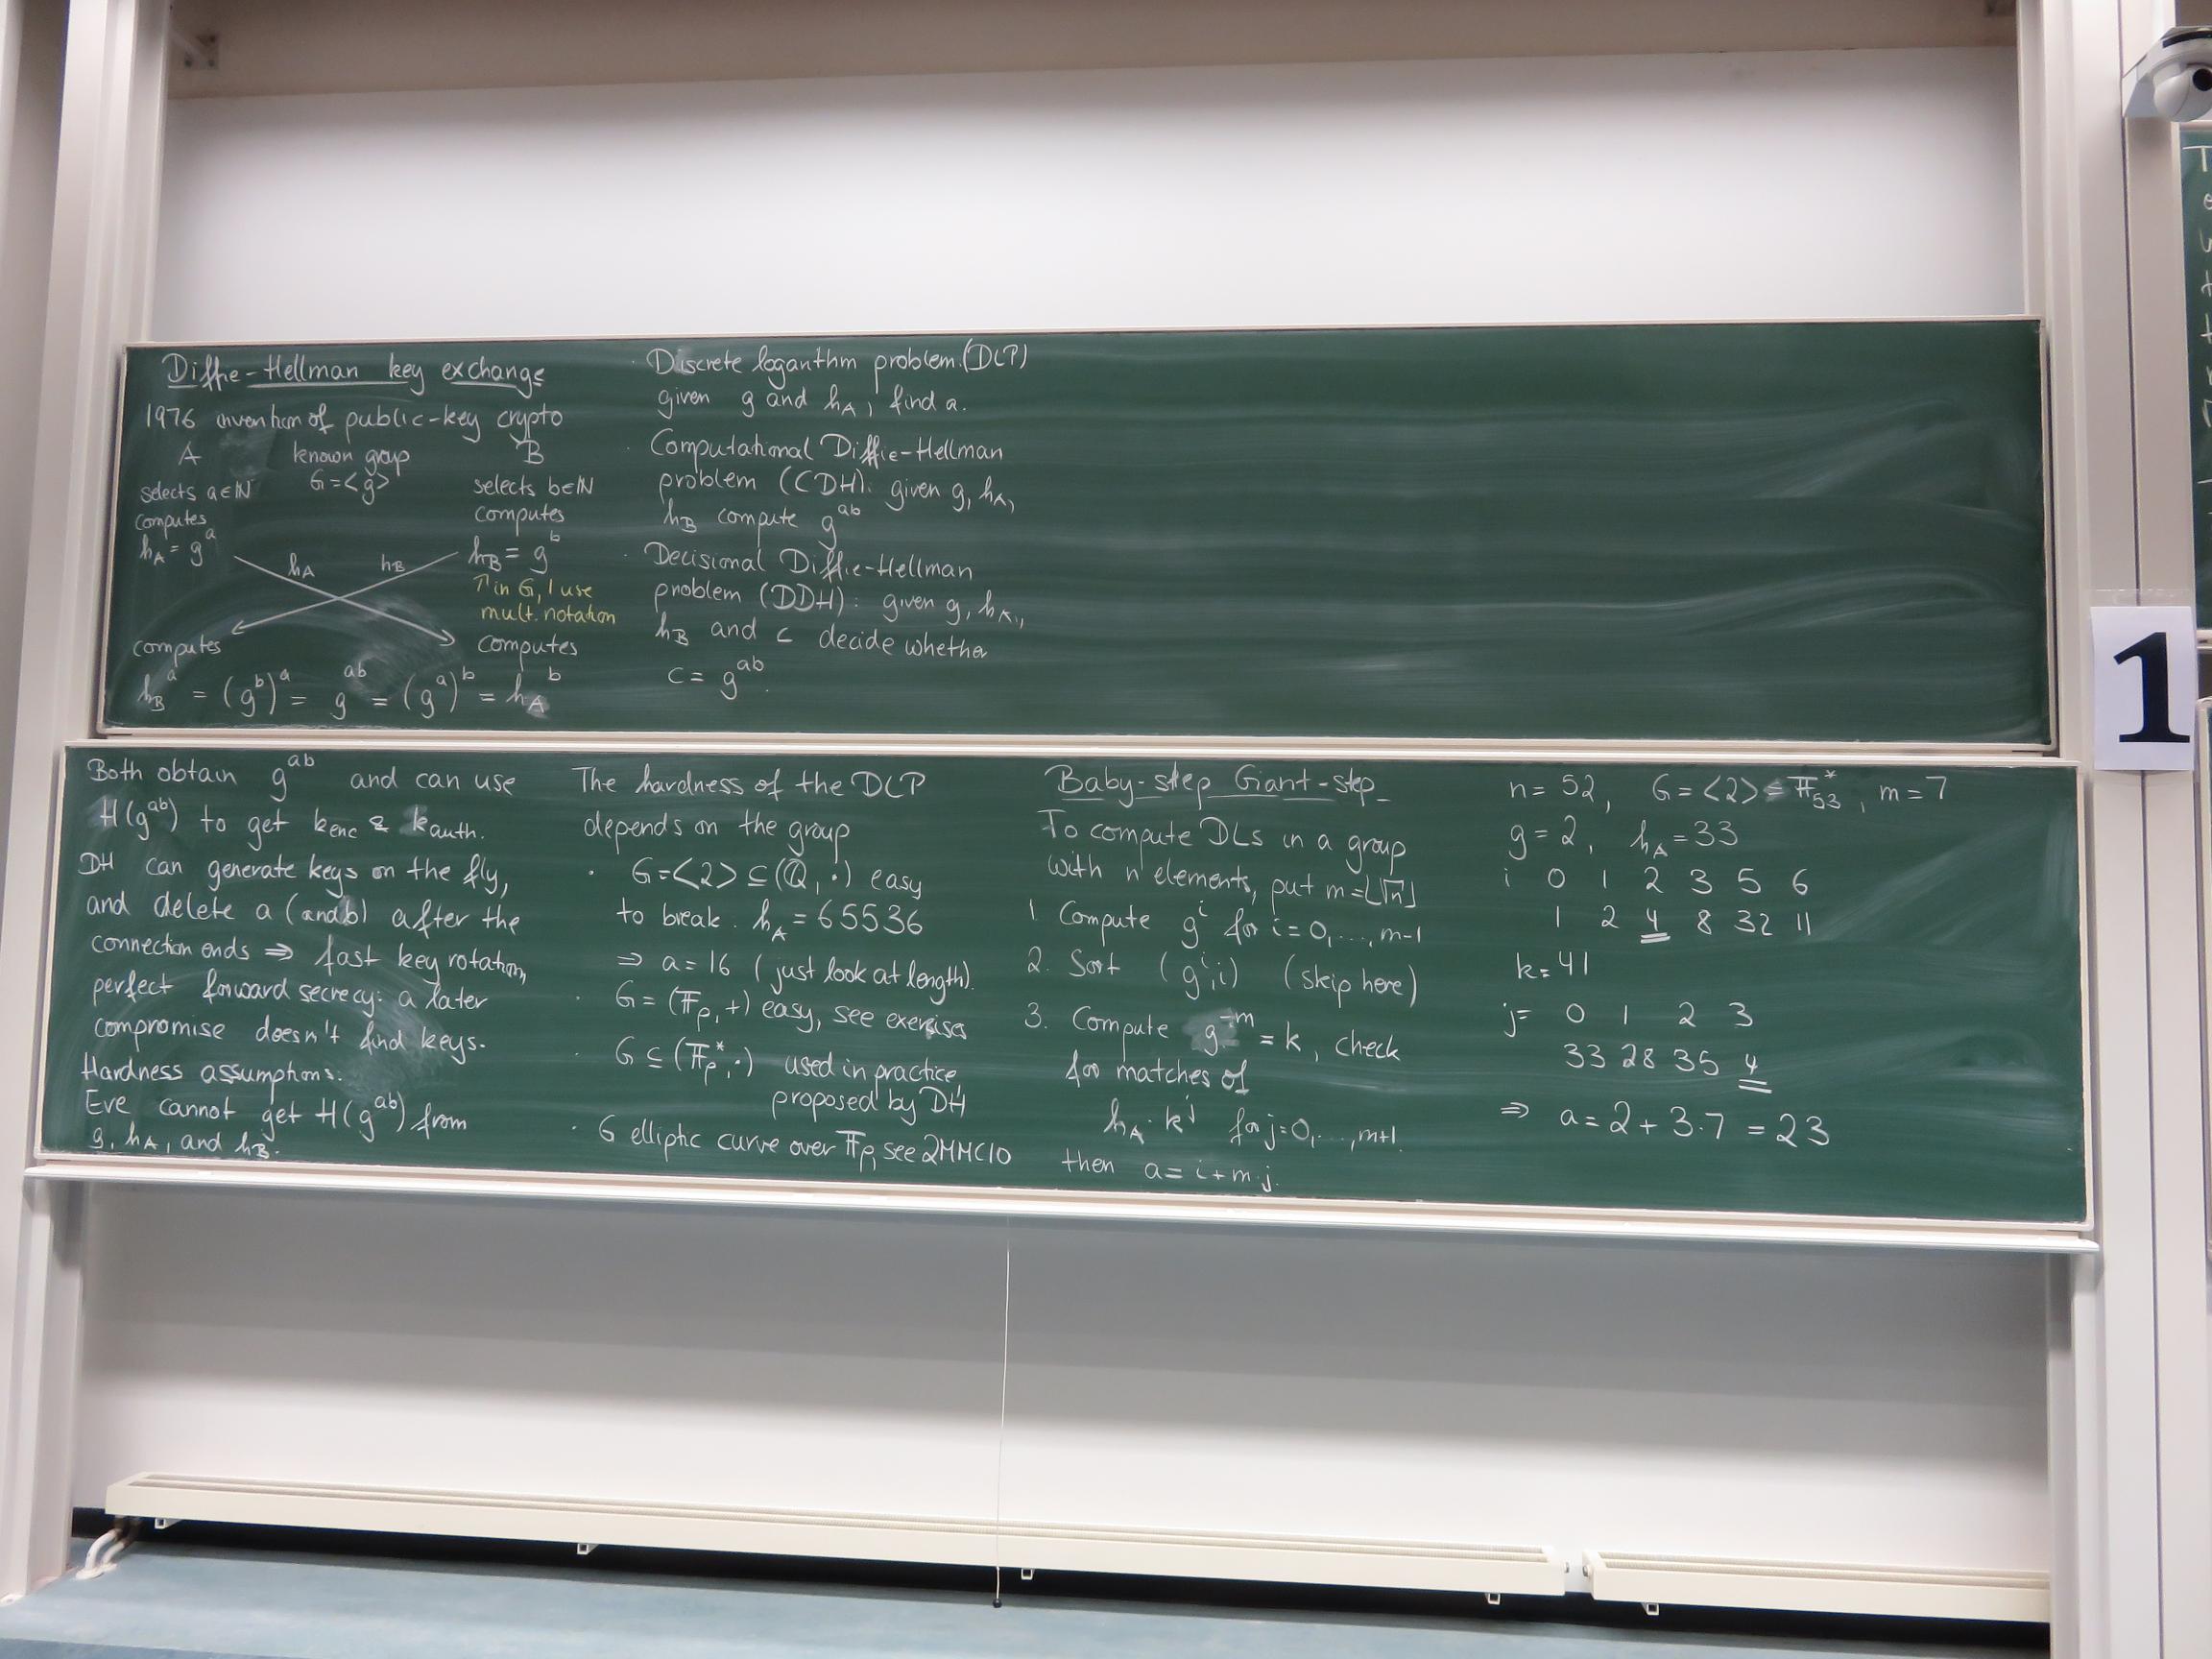 Diffie-Hellman key exchange
1976 invention of public-key crypto
A known group B
selects a∈ℕ G=<g> selects b∈ℕ
computes computes
h_A = g^a h_A h_B h_B = g^b
↑ in G, I use
mult. notation
computes computes
h_B^a = (g^b)^a = g^ab = (g^a)^b = h_A^b
· Discrete logarithm problem (DLP)
given g and h_A, find a.
· Computational Diffie-Hellman
problem (CDH): given g, h_A,
h_B compute g^ab
· Decisional Diffie-Hellman
problem (DDH): given g, h_A,
h_B and c decide whether
c = g^ab.
Both obtain g^ab and can use
H(g^ab) to get k_enc & k_auth.
DH can generate keys on the fly,
and delete a (and b) after the
connection ends ⇒ fast key rotation,
perfect forward secrecy: a later
compromise doesn't find keys.
Hardness assumptions:
Eve cannot get H(g^ab) from
g, h_A, and h_B.
The hardness of the DLP
depends on the group
· G=<2> ⊆ (ℚ, ·) easy
to break. h_A = 65536
⇒ a=16 (just look at length).
· G = (𝔽_p, +) easy, see exercises
· G ⊆ (𝔽_p^*, ·) used in practice
proposed by DH
· G elliptic curve over 𝔽_p, see 2MMC10
Baby-step Giant-step
To compute DLs in a group
with n elements, put m=⌊√n⌋
1. Compute g^i for i=0,...,m-1
2. Sort (g^i, i) (skip here)
3. Compute g^-m = k, check
for matches of
h_A · k^j for j=0,...,m+1.
then a = i+m·j.
n = 52, G = <2> = 𝔽_53^*, m = 7
g = 2, h_A = 33
i 0 1 2 3 5 6
1 2 4 8 32 11
k = 41
j= 0 1 2 3
33 28 35 4
⇒ a = 2 + 3·7 = 23
1